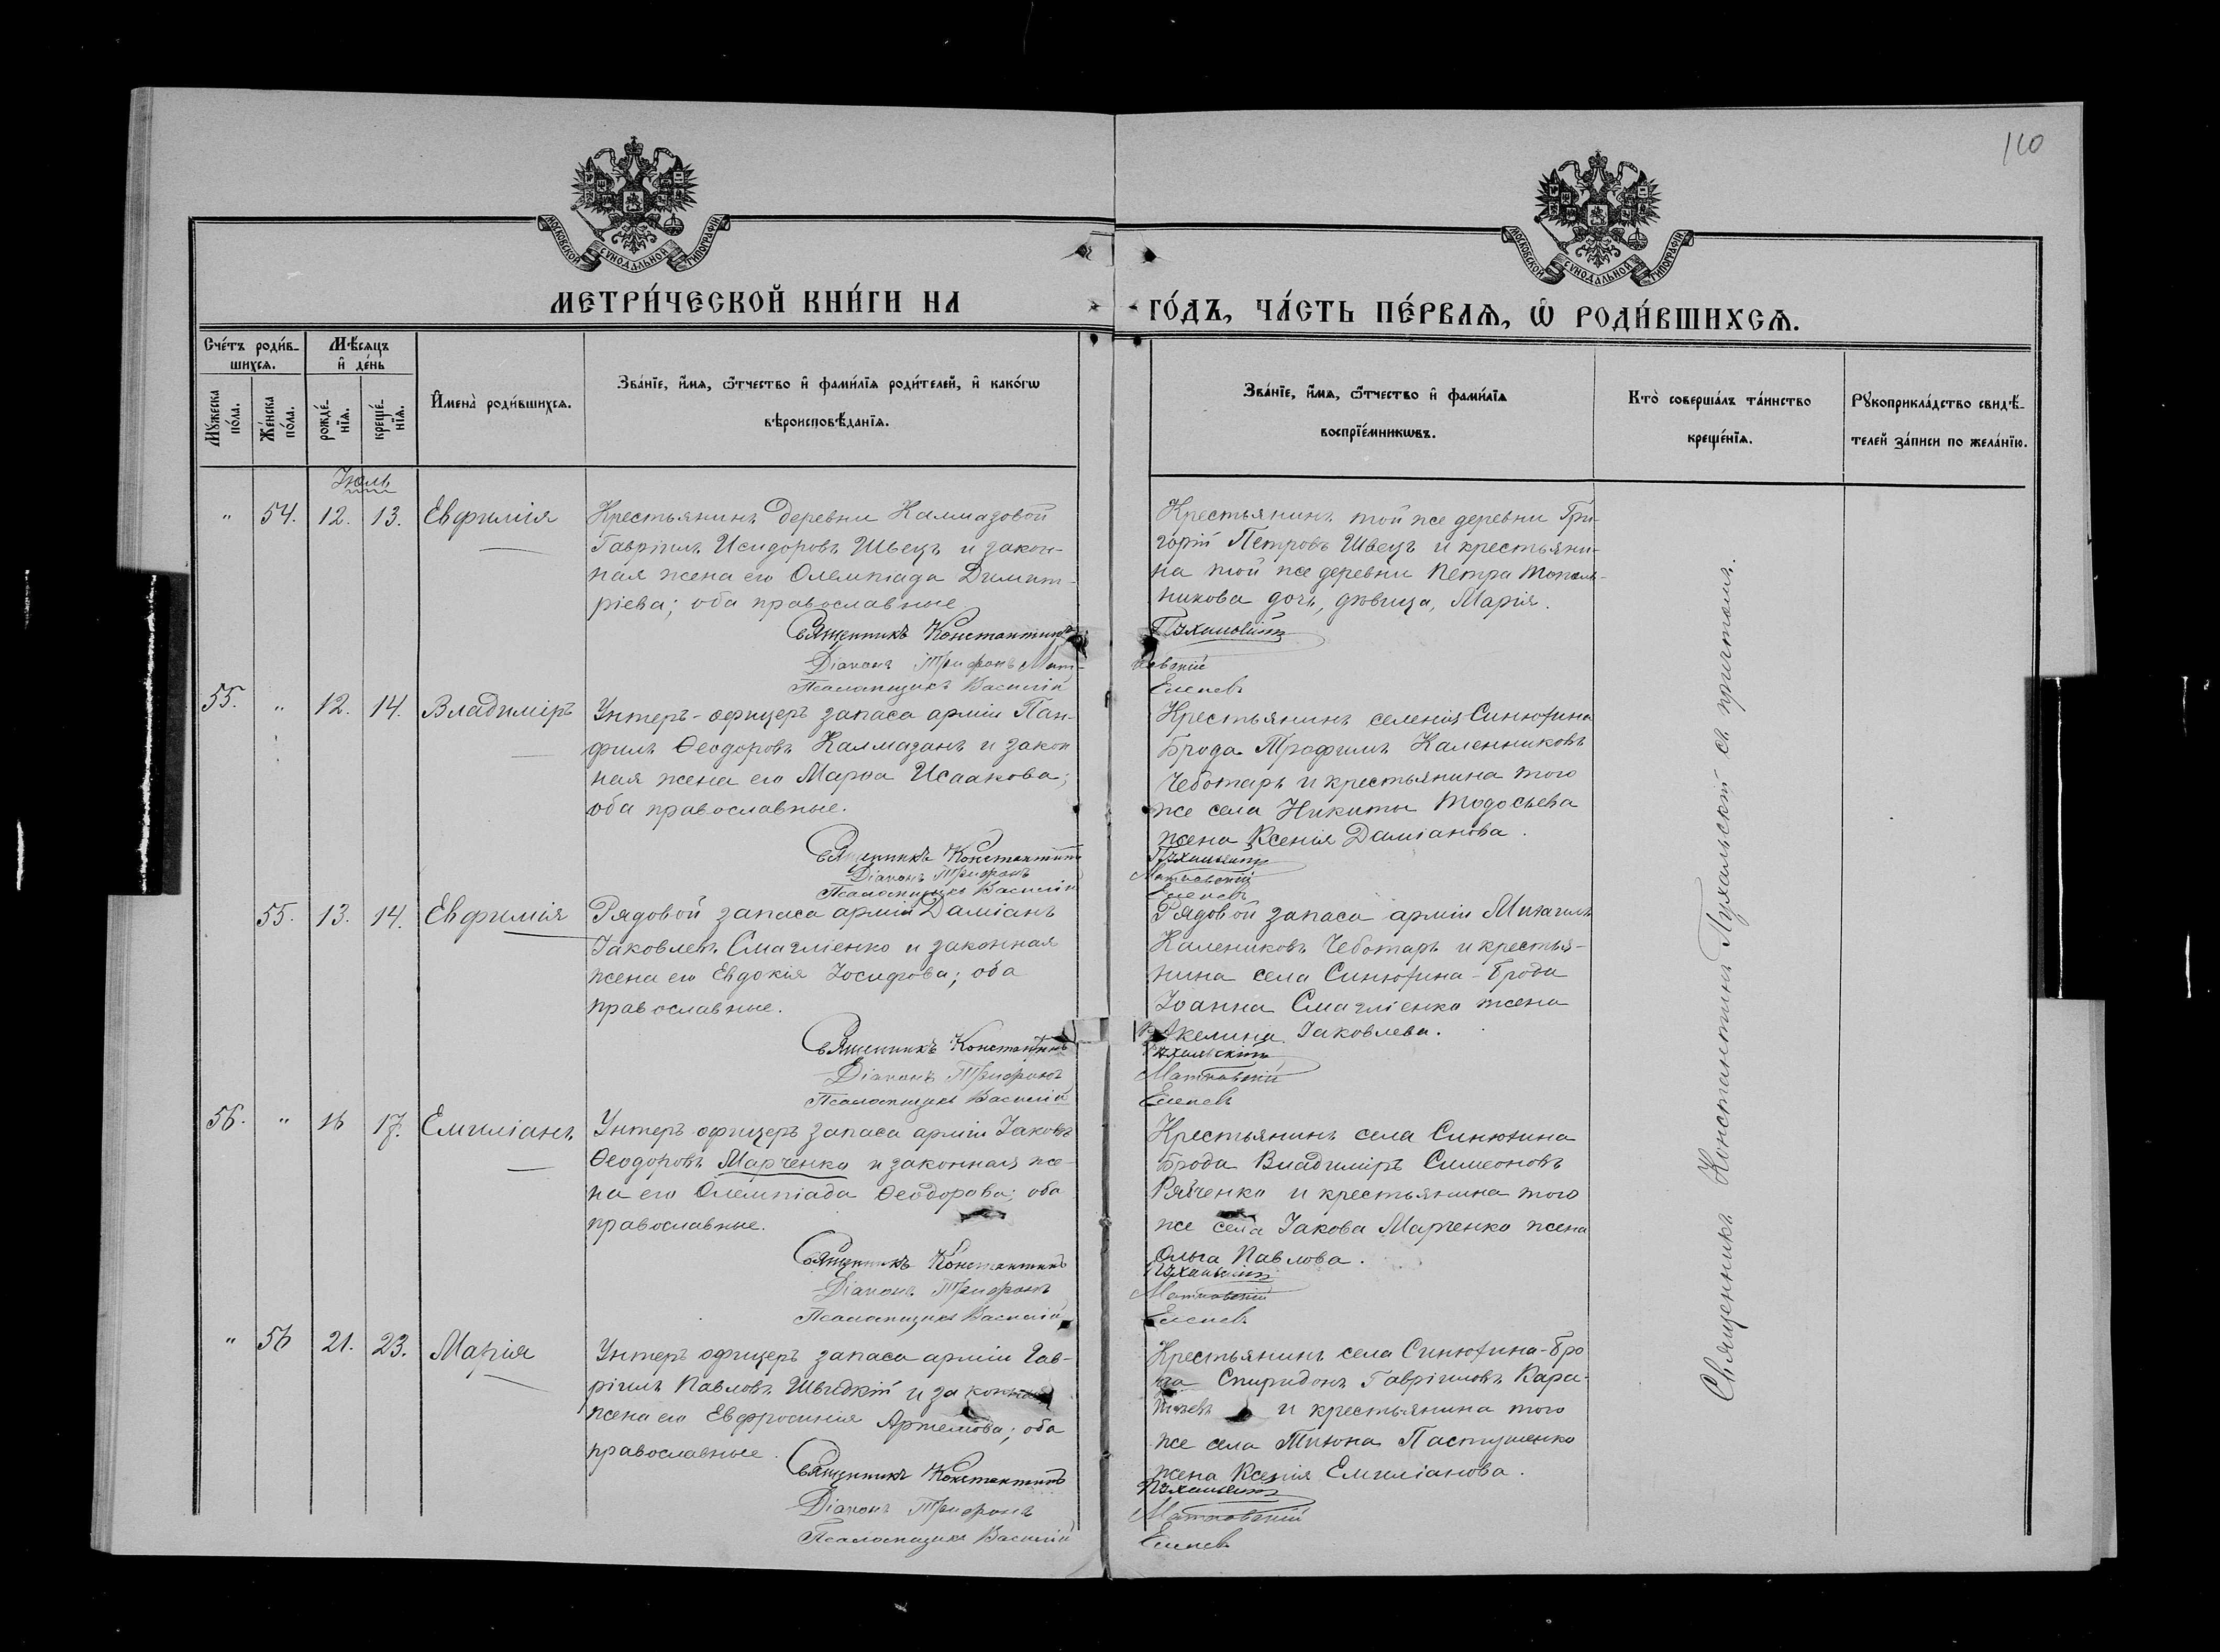 110
МОСКОВСКОЙ СѴНОДАЛЬНОЙ ТИПОГРАФІИ
МОСКОВСКОЙ СѴНОДАЛЬНОЙ ТИПОГРАФІИ
МЕТРИ́ЧЕСКОЙ КНИ́ГИ НА
ГО́ДЪ, ЧА́СТЬ ПЕ́РВАѦ, Ѡ РОДИ́ВШИХСѦ.
Сче́тъ роди́в-
шихсѧ.
Мѣ́сѧцъ
и҆ де́нь
Мꙋ́жеска
по́ла.
Же́нска
по́ла.
рожде́-
нїѧ.
креще́-
нїѧ.
И҆мена̀ роди́вшихсѧ.
Зва́нїе, и҆́мѧ, ѻ҆́тчество и҆ фамі́лїѧ роди́телей, и҆ како́гѡ
вѣроисповѣ́данїѧ.
Зва́нїе, и҆́мѧ, ѻ҆́тчество и҆ фамі́лїѧ
воспрїе́мникѡвъ.
Кто̀ соверша́лъ та́инство
креще́нїѧ.
Рꙋкоприкла́дство свидѣ́-
телей за́писи по жела́нїю.
Іюль
" 54. 12. 13. Евфимія
Крестьянинъ деревни Калмазовой
Гавріилъ Исидоровъ Швецъ и закон-
ная жена его Олемпіада Димит-
ріева; оба православные.
Священникъ Константинъ
Діаконъ Трифонъ Мат-
Псаломщикъ Василій
Крестьянинъ той же деревни Гри-
горій Петровъ Швецъ и крестьяни-
на той же деревни Петра Тополь-
никова дочь, дѣвица, Марія.
Пухальскій
ковскій
Еленевъ
55. " 12. 14. Владиміръ
Унтеръ-офицеръ запаса арміи Пан-
филъ Ѳеодоровъ Калмазанъ и закон
ная жена его Марѳа Исаакова;
оба православные.
Священникъ Константинъ
Діаконъ Трифонъ
Псаломщикъ Василій
Крестьянинъ селенія Синюхина
Брода Трофимъ Каленниковъ
Чеботарь и крестьянина того
же села Никиты Тодосьева
жена Ксенія Даміанова.
Пухальскій
Матковскій
Еленевъ
55. 13. 14. Евфимія
Рядовой запаса арміи Даміанъ
Іаковлевъ Смагліенко и законная
жена его Евдокія Іосифова; оба
православные.
Священникъ Константинъ
Діаконъ Трифонъ
Псаломщикъ Василій
Рядовой запаса арміи Михаилъ
Калениковъ Чеботарь и крестья-
нина села Синюхина-Брода
Іоанна Смагліенко жена
Акелина Іаковлева.
Пухальскій
Матковскій
Еленевъ
56. " 16 17. Емиліанъ
Унтеръ-офицеръ запаса арміи Іаковъ
Ѳеодоровъ Марченко и законная же-
на его Олемпіада Ѳеодорова; оба
православные.
Священникъ Константинъ
Діаконъ Трифонъ
Псаломщикъ Василій
Крестьянинъ села Синюхина
Брода Владиміръ Симеоновъ
Рябченко и крестьянина того
же села Іакова Марченко жена
Ольга Павлова.
Пухальскій
Матковскій
Еленевъ
" 56 21. 23. Марія
Унтеръ офицеръ запаса арміи Гав-
ріилъ Павловъ Швыдкій и законная
жена его Евфросинія Артемова; оба
православные.
Священникъ Константинъ
Діаконъ Трифонъ
Псаломщикъ Василій
Крестьянинъ села Синюхина-Бро
да Спиридонъ Гавріиловъ Кара-
и крестьянина того
же села Тихона Пастушенко
жена Ксенія Емиліанова.
Пухальскій
Матковскій
Еленевъ
Священникъ Константинъ Пухальскій съ причтомъ.